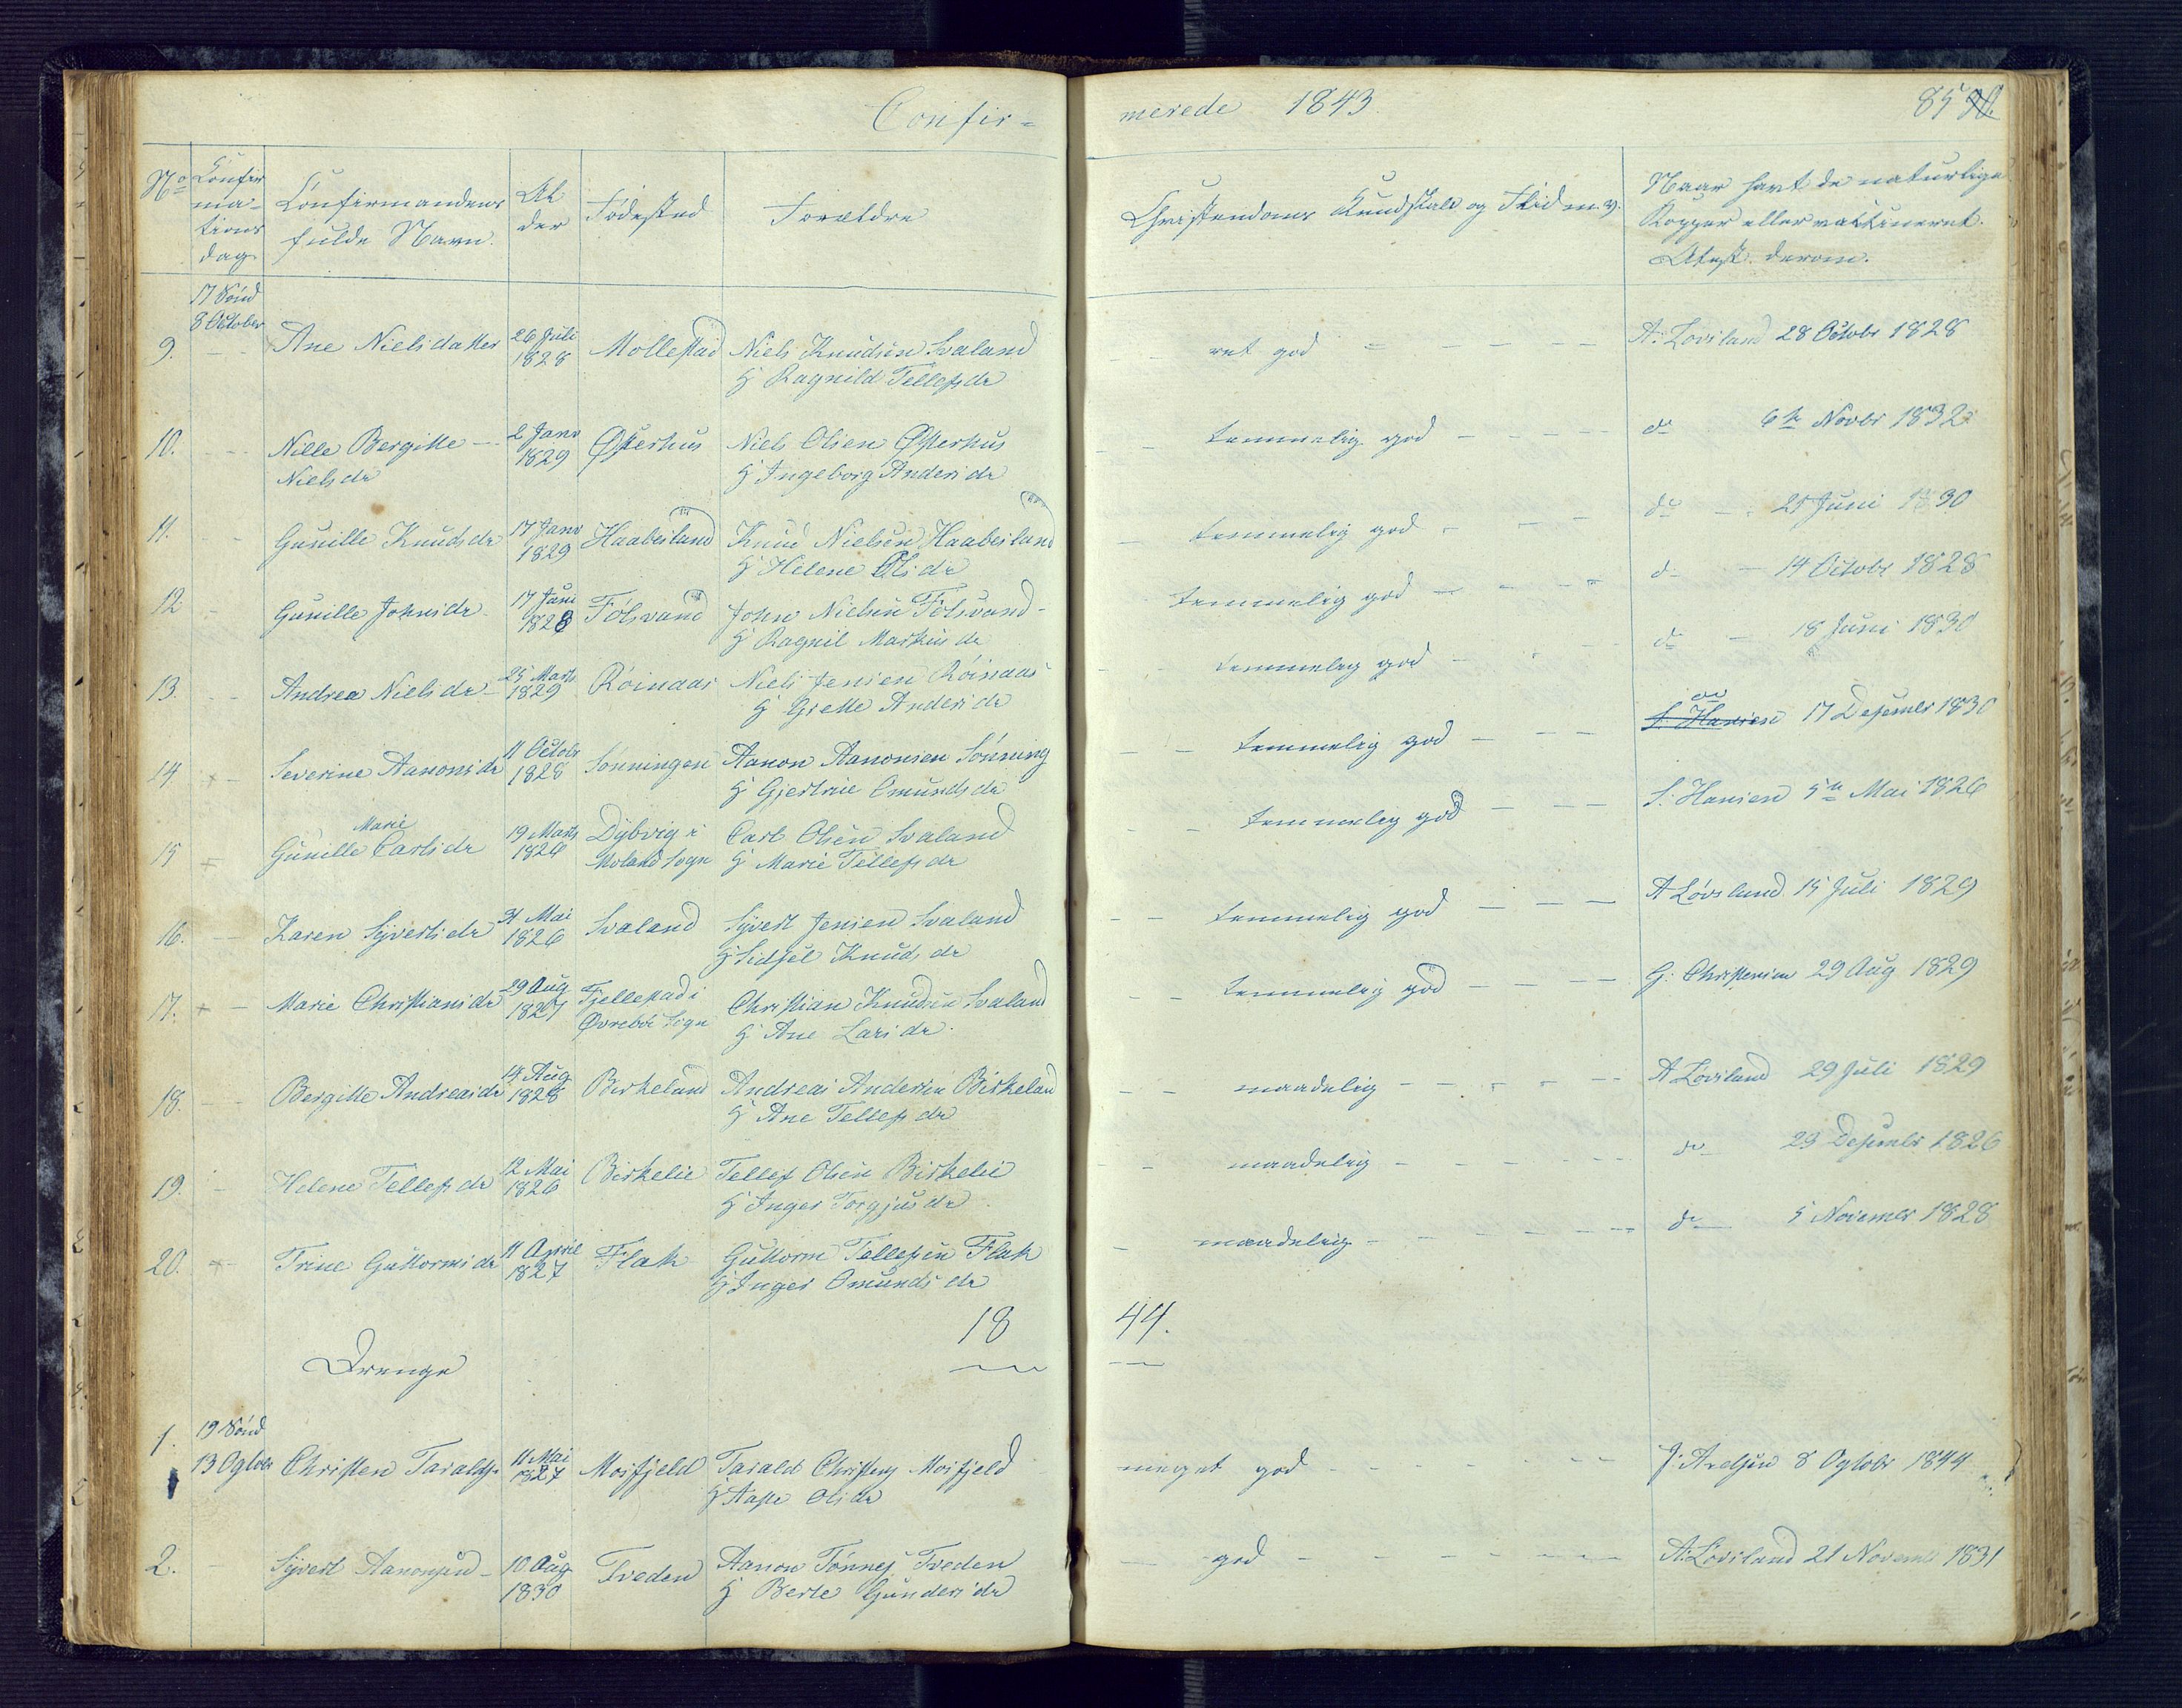 Confir=
merede 1843.
85
No
Confirmationsdag
Confirmandens fulde Navn.
Alder
Fødested
Forældre
Christendoms Kundskab og Flid m. v.
Naar havt de naturlige Kopper eller vaccineret. Attest derom.
17 Sønd
8 October
9. Ane Nielsdatter 26 Juli 1828 Mollestad Niels Knudsen Svaland
H Ragnild Tellefsdr
ret god A: Løvsland 28 Octobr 1828
10. Nille Bergitte Nielsdr 2 Janr 1829 Østerhus Niels Olsen Østerhus
H Ingeborg Andersdr
temmelig god do 6te Novbr 1832
11. Gunille Knudsdr 17 Janr 1829 Haabesland Knud Nielsen Haabesland
H Helene Olsdr
temmelig god do 21 Juni 1830
12 Gunille Johnsdr 17 Juni 1828 Følsvand John Nielsen Følsvand
H Ragnil Markusdr
temmelig god do 14 Octobr 1828
13. Andrea Nielsdr 25 Marts 1829 Röinaas Niels Jensen Röinaas
H Grette Andersdr
temmelig god do 18 Juni 1830
14. Severine Aanonsdr 11 Octobr 1828 Sønningen Aanon Aanonsen Sønning
H Gjertrue Omundsdr
temmelig god do S. Hansen 17 Desembr 1830
15 Gunille Marie Carlsdr 19 Marts 1826 Dybvig i Moland Sogn Carl Olsen Svaland
H Marie Tellefsdr
temmelig god S: Hansen 5te Mai 1826
16. Karen Syvertsdr 31 Mai 1826 Svaland Syvert Jensen Svaland
H Sidsel Knudsdr
temmelig god A Løvsland 15 Juli 1829
17. Marie Christiansdr 29 Aug 1827 Fjellestad i Øvrebö Sogn Christian Knudsen Svaland
H Ane Larsdr.
temmelig god G: Christensen 29 Aug 1829
18. Bergitte Andreasdr 14 Aug 1828 Birkeland Andreas Andersen Birkeland
H Ane Tellefsdr
maadelig A Løvsland 29 Juli 1829
19. Helene Tellefsdr 12 Mai 1826 Birkelie Tellef Olsen Birkelie
H Inger Torgjusdr
maadelig do 29 Desembr 1826
20. Trine Guttormsdr 11 April 1827 Flak Guttorm Tellefsen Flak
H Inger Omundsdr
maadelig do 5 Novembr 1828
18 44.
Drenge
19 Sønd
1. 13 Ogtobr Christen Taraldsn 11 Mai 1827 Mosfjeld Tarald Christens Mosfjeld
H Aaste Olsdr
meget god J: Axelsen 8 Ogtobr 1844
2. Syvert Aanonsen 10 Aug 1830 Tveden Aanon Tønnes Tveden
H Berte Gundersdr
god A: Løvsland 21 Novembr 1831